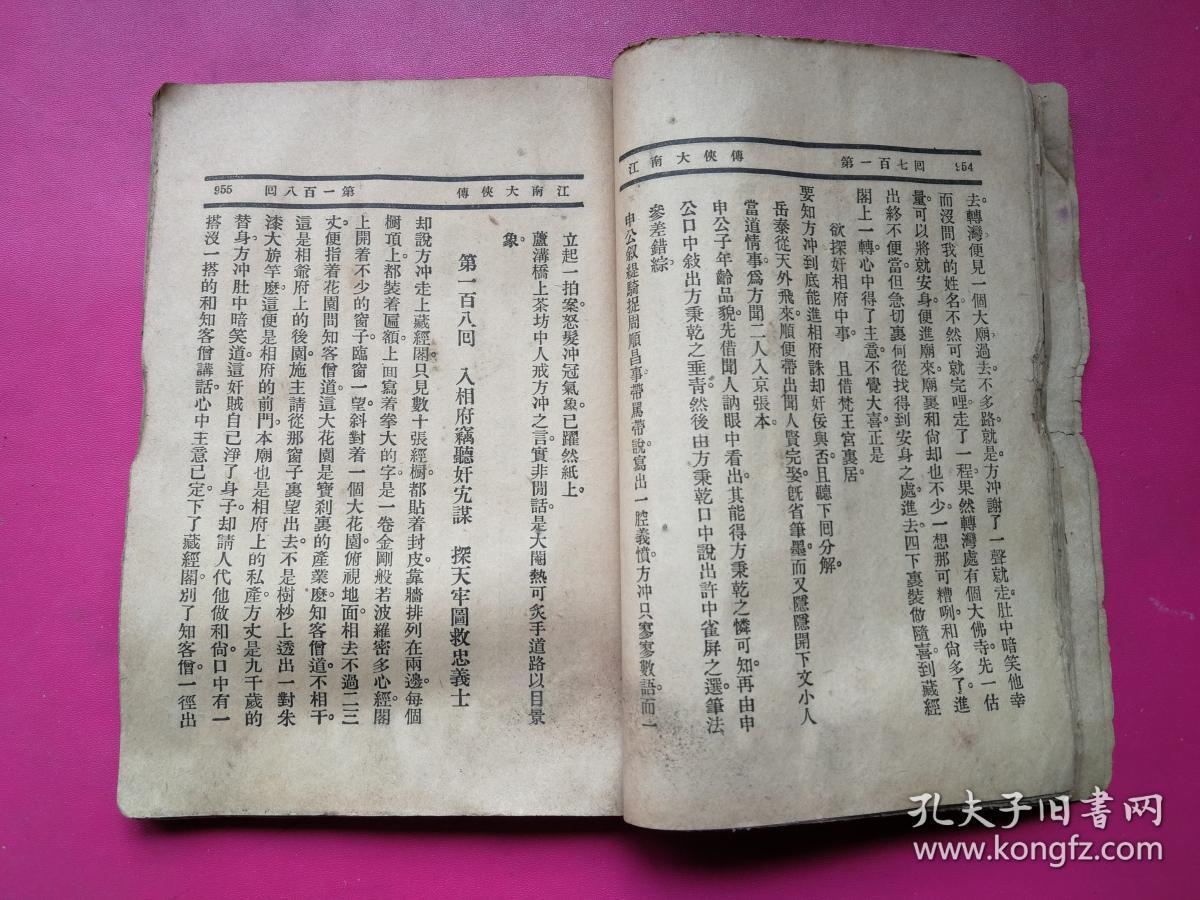 954　回七百一第　　　傳俠大南江
去。轉灣便見一個大廟。過去不多路。就是。方冲謝了一聲就走。肚中暗笑他幸
而沒問我的姓名。不然可就完哩。走了一程。果然轉灣處有個大佛寺。先一估
量。可以將就安身。便進廟來。廟裏和尙却也不少。一想那可糟咧。和尙多了。進
出終不便當。但急切裏何從找得到安身之處。進去四下裏裝做隨喜。到藏經
閣上一轉。心中得了主意。不覺大喜。正是
欲探奸相府中事　且借梵王宮裏居
要知方冲到底能進相府誅却奸佞與否。且聽下囘分解。
岳泰從天外飛來。順便帶出聞人賢完娶。旣省筆墨。而又隱隱開下文小人
當道情事。爲方聞二人入京張本。
申公子年齡品貌。先借聞人訥眼中看出。其能得方秉乾之憐可知。再由申
公口中敍出方秉乾之垂靑。然後由方秉乾口中說出許中雀屛之選。筆法
參差錯綜。
申公叙緹騎捉周順昌事。帶罵帶說。寫出一腔義憤。方冲只寥寥數語。而一
江南大俠傳　　　第一百八回　955
立起一拍案。怒髮冲冠氣象。已躍然紙上。
蘆溝橋上茶坊中人戒方冲之言。實非閒話。是大閹熱可炙手。道路以目景
象。
第一百八囘　入相府竊聽奸宄謀　探天牢圖救忠義士
却說方冲走上藏經閣。只見數十張經櫥。都貼着封皮。靠牆排列在兩邊。每個
櫥頂上都裝着匾額。上面寫着拳大的字。是一卷金剛般若波羅密多心經。閣
上開着不少的窗子。臨窗一望。斜對着一個大花園。俯視地面。相去不過二三
丈。便指着花園問知客僧道。這大花園是寶刹裏的產業麽。知客僧道。不相干。
這是相爺府上的後園。施主請從那窗子裏望出去。不是樹杪上透出一對朱
漆大旂竿麽。這便是相府的前門。本廟也是相府上的私產。方丈是九千歲的
替身。方冲肚中暗笑道。這奸賊自己淨了身子。却請人代他做和尙。口中有一
搭沒一搭的和知客僧講話。心中主意已定。下了藏經閣。別了知客僧。一徑出
孔夫子旧书网
www.kongfz.com